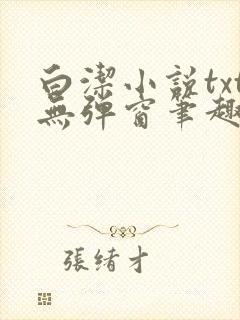 白潔小説txt
無彈窗筆趣
張緒才